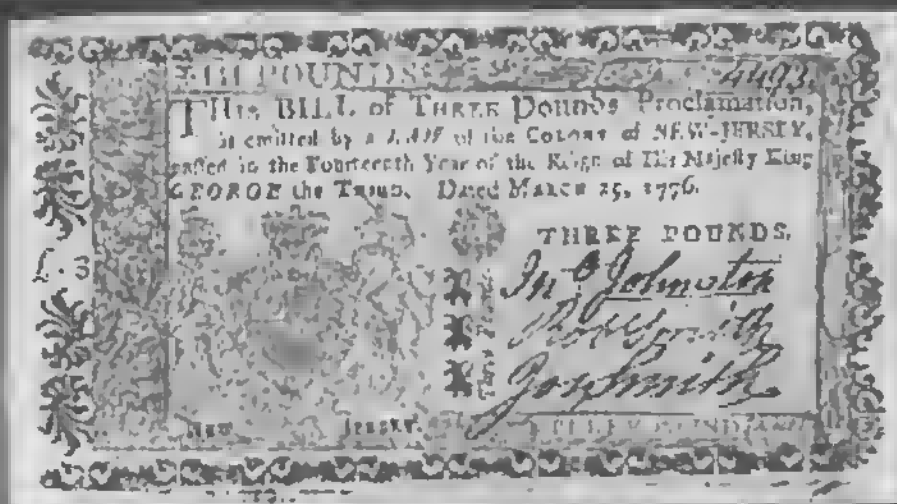 POUNDS
4493
THIS BILL of THREE Pounds Proclamation,
is emitted by a LAW of the COLONY of NEW-JERSEY,
passed in the Fourteenth Year of the Reign of His Majesty King
GEORGE the THIRD. Dated MARCH 25, 1776.
THREE POUNDS.
£. 3
Jn.º Johnston
Smith
Jos Smith
NEW JERSEY.